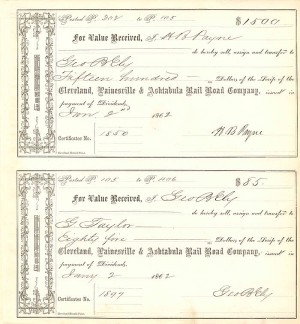 Posted P. 202 to P. 105 $1500
For Value Received, I, H. B. Payne
do hereby sell, assign and transfer to
Geo B Ely
Fifteen hundred Dollars of the Scrip of the
Cleveland, Painesville & Ashtabula Rail Road Company, issued in
payment of Dividends,
Jan 2nd 1862
Certificates No. 1850 H. B Payne
Posted P. 105 to P. 106 $85.
For Value Received, I, Geo B Ely
do hereby sell, assign and transfer to
G. Taylor
Eighty five Dollars of the Scrip of the
Cleveland, Painesville & Ashtabula Rail Road Company, issued in
payment of Dividends,
Jany 2 1862
Certificates No. 1897 Geo B Ely